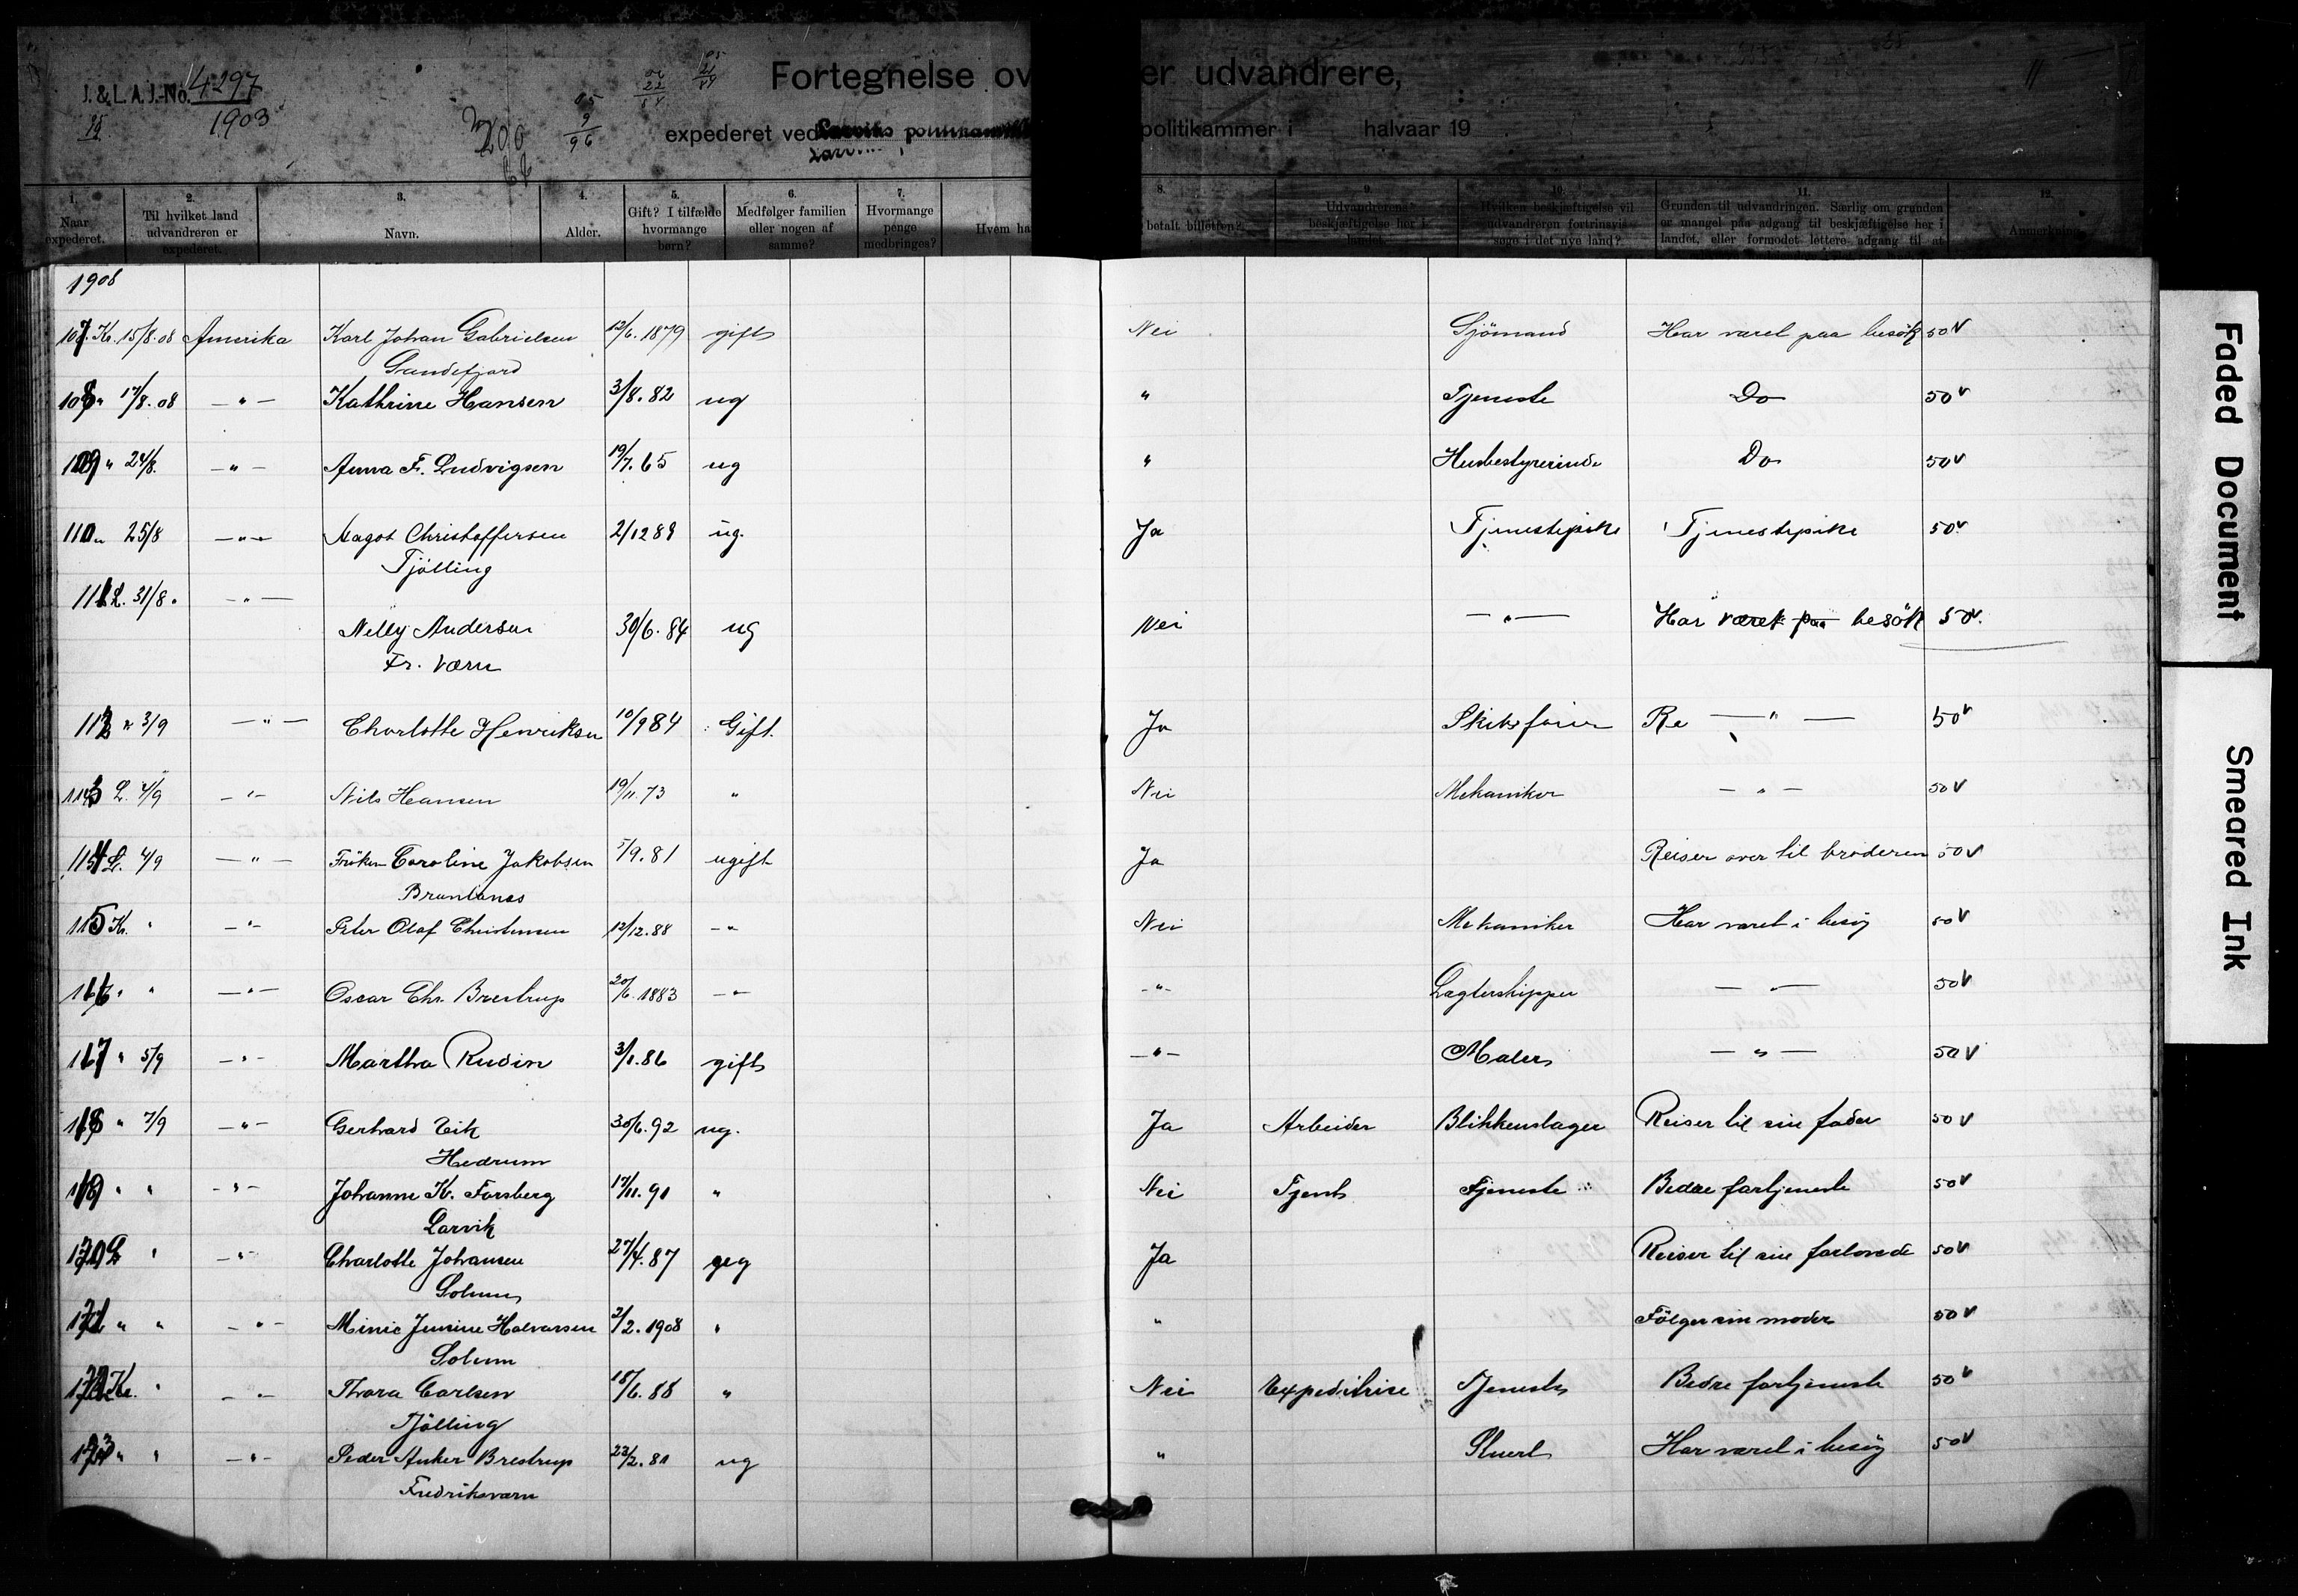 J. & L. A. J.-No. 4297
1903
200
05
9
96
Fortegnelse ov er udvandrere,
expederet ved politikammer i halvaar 19
1. Naar expederet.
2. Til hvilket land udvandreren er expederet.
3. Navn.
4. Alder.
5. Gift? I tilfælde hvormange børn?
6. Medfølger familien eller nogen af samme?
7. Hvormange penge medbringes?
Hvem ha
8. betalt billetten?
9. Udvandrerens beskjæftigelse her i landet.
10. Hvilken beskjæftigelse vil udvandreren fortrinsvis søge i det nye land?
11. Grunden til udvandringen. Særlig om grunden er mangel paa adgang til beskjæftigelse her i landet, eller formodet lettere adgang til at
12. Anmerkning.
1908
107. Kr. 15/8. 08 Amerika Karl Johan Gabrielsen 12/6. 1879 gift Nei Sjömand Har været paa besök 50 v
Sandefjord
108 " 17/8. 08 — " — Kathrine Hansen 3/8. 82 ug " Tjeneste Do 50 v
109 " 24/8. — " — Anna F. Ludvigsen 19/7. 65 ug " Husbestyrerinde Do 50 v
110 " 25/8 — " — Aagot Christoffersen 2/12 89 ug. Ja Tjenestepike Tjenestepike 50 v
Tjölling
111 L. 31/8. — " —
Nelly Andersen 30/6. 84 ug Nei — " — Har været paa besök 50 v.
Fr. værn
112 " 3/9 — " — Charlotte Henriksen 10/9 84 Gift. Ja Re — " — 50 v
113 L. 4/9 — " — Nils Hansen 19/11. 73 " Nei Mekaniker — " — 50 v
114 L. 4/9 — " — Fröken Caroline Jakobsen 5/9. 81 ugift Ja Reiser over til broderen 50 v
Brunlanes
115 Kr. " — " — Peter Olaf Christensen 12/12. 88 — " Nei Mekaniker Har været i besög 50 v
116 " " — " — Oscar Chr. Brestrup 20/6. 1883 — " — " — Lægterskipper — " — 50 v
117 " 5/9 — " — Martha Rudin 3/1. 86 gift — " — Maler — " — 50 v
118 " 7/9 — " — Gerhard Eik 30/6. 92 ug. Ja Arbeider Blikkenslager Reiser til sin fader 50 v
Hedrum
119 " " — " — Johanne K. Forsberg 17/11. 91 " Nei Tjent Tjeneste Bedre fortjeneste 50 v
Larvik
120 L " — " — Charlotte Johansen 27/4. 87 Ja Reiser til sin forlovede 50 v
Solum
121 " " — " — Minie Jensine Halvorsen 2/2. 1908 " " Fölger sin moder 50 v
Solum
122 Kr. " — " — Thora Carlsen 18/6. 88 " Nei Expeditrise Tjeneste Bedre fortjeneste 50 v
Tjölling
123 " " — " — Peder Anker Brestrup 23/2. 81 ug " Stuert Har været i besög 50 v
Fredriksværn
Faded Document
Smeared Ink